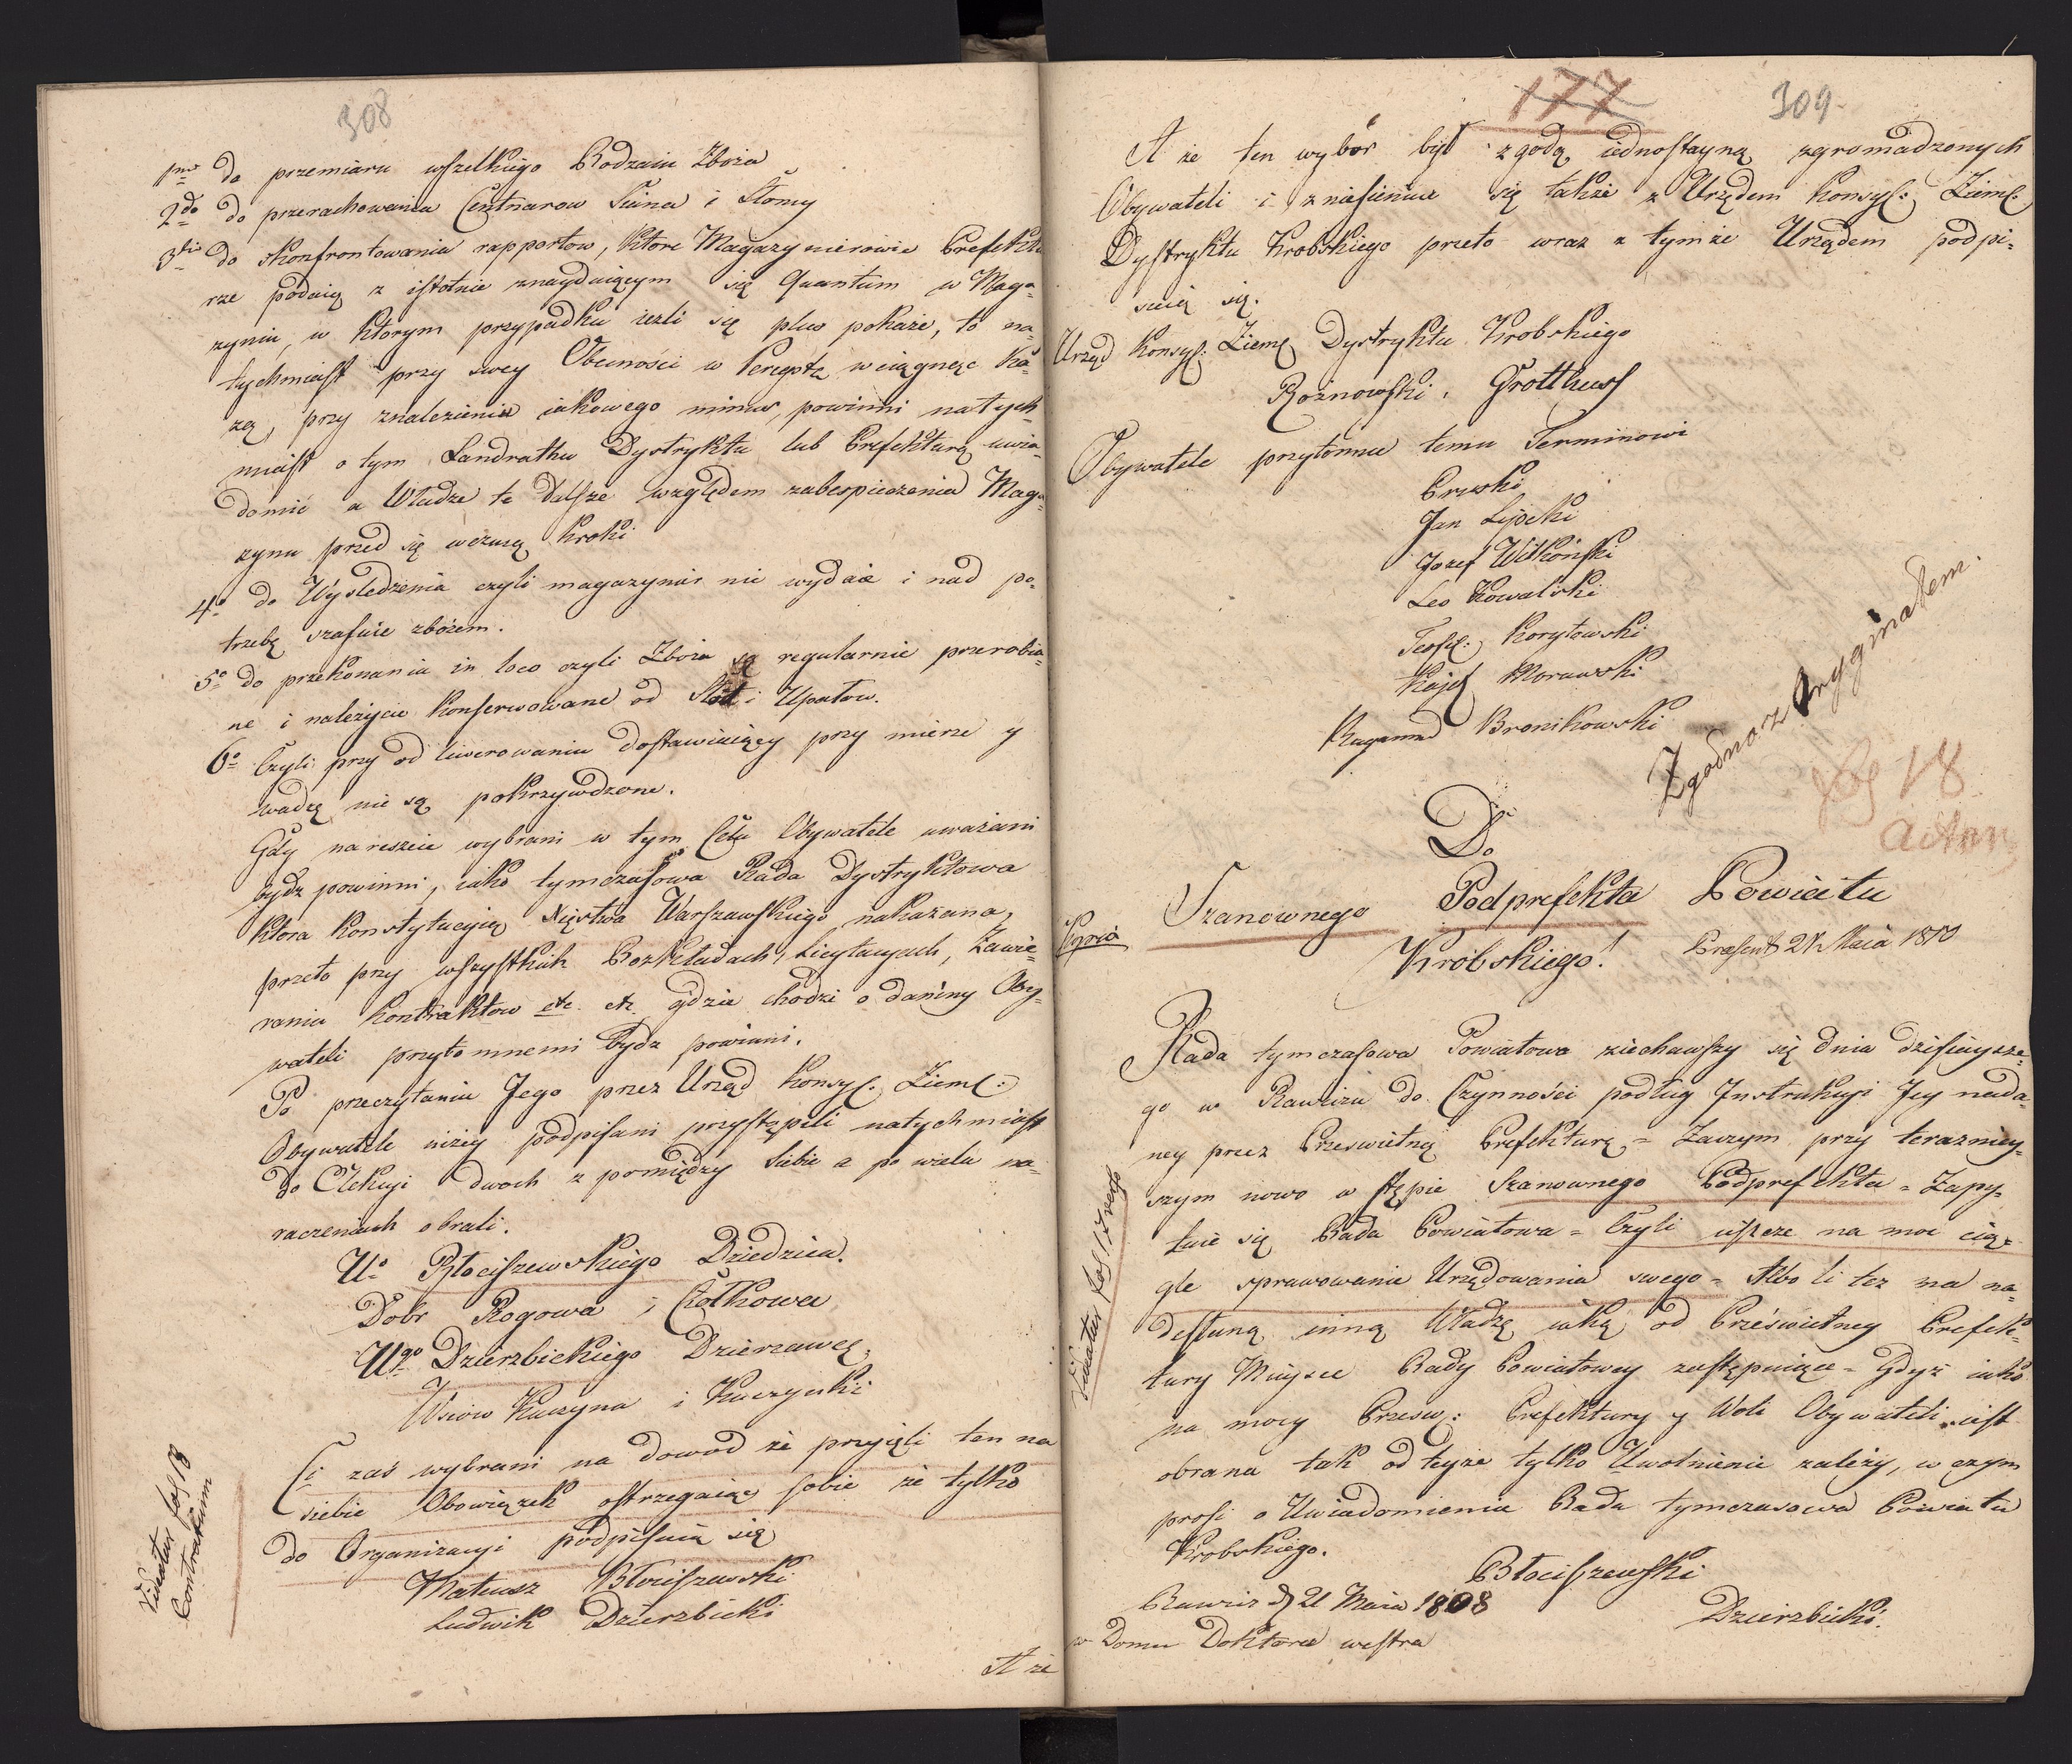 308
1mo do przemiaru wszelkiego Rodzaiu Zboża
2do do przerachowania Centnarow Siana i Słomy
3tio do skonfrontowania rapportow, ktore Magazynierowie Prefektu
rze podaią z istotnie znayduiącym się Quantum w Maga=
zynie, w ktorym przypadku ieżli się plus pokaże, to na=
tychmiast przy swey Obecnosci w Perceptę wciągnąć ka=
żą, przy znalezieniu iakowego minus, powinni natych=
miast o tym Landratha Dystryktu lub Prefekturę uwia=
domić a Władze te dalsze względem zabespieczenia Maga=
zynu przed się wezmą kroki
4o do Wysledzenia czyli magazynier nie wydaie i nad po=
trzebę szafuie zbożem.
5o do przekonania in loco czyli Zboża są regularnie przerobia=
ne i należycie konserwowane od i Upałow.
6o Czyli przy od liwerowaniu dostawiaiący przy mierze y
wadzę nie są pokrzywdzone.
Gdy nareszcie wybrani w tym Celu Obywatele uważani
bydz powinni, iako tymczasowa Rada Dystryktowa
ktora konstytucyią Xięstwa Warszawskiego nakazana,
przeto przy wszystkich Rozkładach, Licytacyach, Zawie=
raniu kontraktow etc. etc. gdzie chodzi o daniny Oby=
wateli przytomnemi bydz powinni.
Po przeczytaniu Jego przez Urząd Konsyl: Zieml:
Obywatele niżey podpisani przystąpili natychmiast
do Elekcyi dwoch z pomiędzy siebie a po wielu na=
raczeniach obrali.
Uo Błociszewskiego Dziedzica.
Dobr Rogowa i Ciołkowa
Ugo Dzierzbickiego Dzierzawcę
Wsiow Kuczyna i Kuczynki
Ci zaś wybrani na dowod że przyięli ten na
siebie Obowiązek ostrzegaiąc sobie że tylko
do Organizacyi podpisuią się
Mateusz Błociszewski
Ludwik Dzierzbicki
Videatur fol 18
Contrarium
A że
177
309
A że ten wybór był zgodą iednostayną zgromadzonych
Obywateli i zniesieniu się także z Urzędem Konsyl: Zieml:
Dystryktu Krobskiego przeto wraz z tymże Urzędem podpi=
suią się.
Urząd Konsyl: Zieml Dystryktu Krobskiego
Rożnowski. Grotthuss
Obywatele przytomni temu Terminowi
Pruski
Jan Lipski
Jozef Witkoński
Leo Kowalski
Teofil: Korytowski
Kajet Morawski
Raymund Bronikowski
Zgodno z Oryginałem.
fol 18
actor
Do
Szanownego Podprefekta Powiatu
Kopia
Krobskiego!
Præsent 21 Maia 1808
Rada tymczasowa Powiatowa ziechawszy się dnia dzisieysze=
go w Rawiczu do Czynności podług Instrukcyi Jey nada=
ney przez Prześwietną Prefekturę = Zaczym przy terazniey=
szym nowo w stępie Szanownego Podprefekta = Zapy=
tuie się Rada Powiatowa = Czyli ieszcze na moc cią=
gle sprawowanie Urzędowania swego = Albo li też ma na=
desłaną inną Władzę iaką od Prześwietney Prefek=
tury Mieysce Rady Powiatowey zastępuiące = Gdyż iako
na mocy Przesw: Prefektury y Woli Obywateli iest
obrana tak od teyże tylko Uwolnienie zależy, w czym
prosi o Uwiadomienie Rada tymczasowa Powiatu
Krobskiego.
Błociszewski
Rawicz d 21 Maia 1808
Dzierzbicki.
w Domu Doktora westra
Videatur fol 17 verso